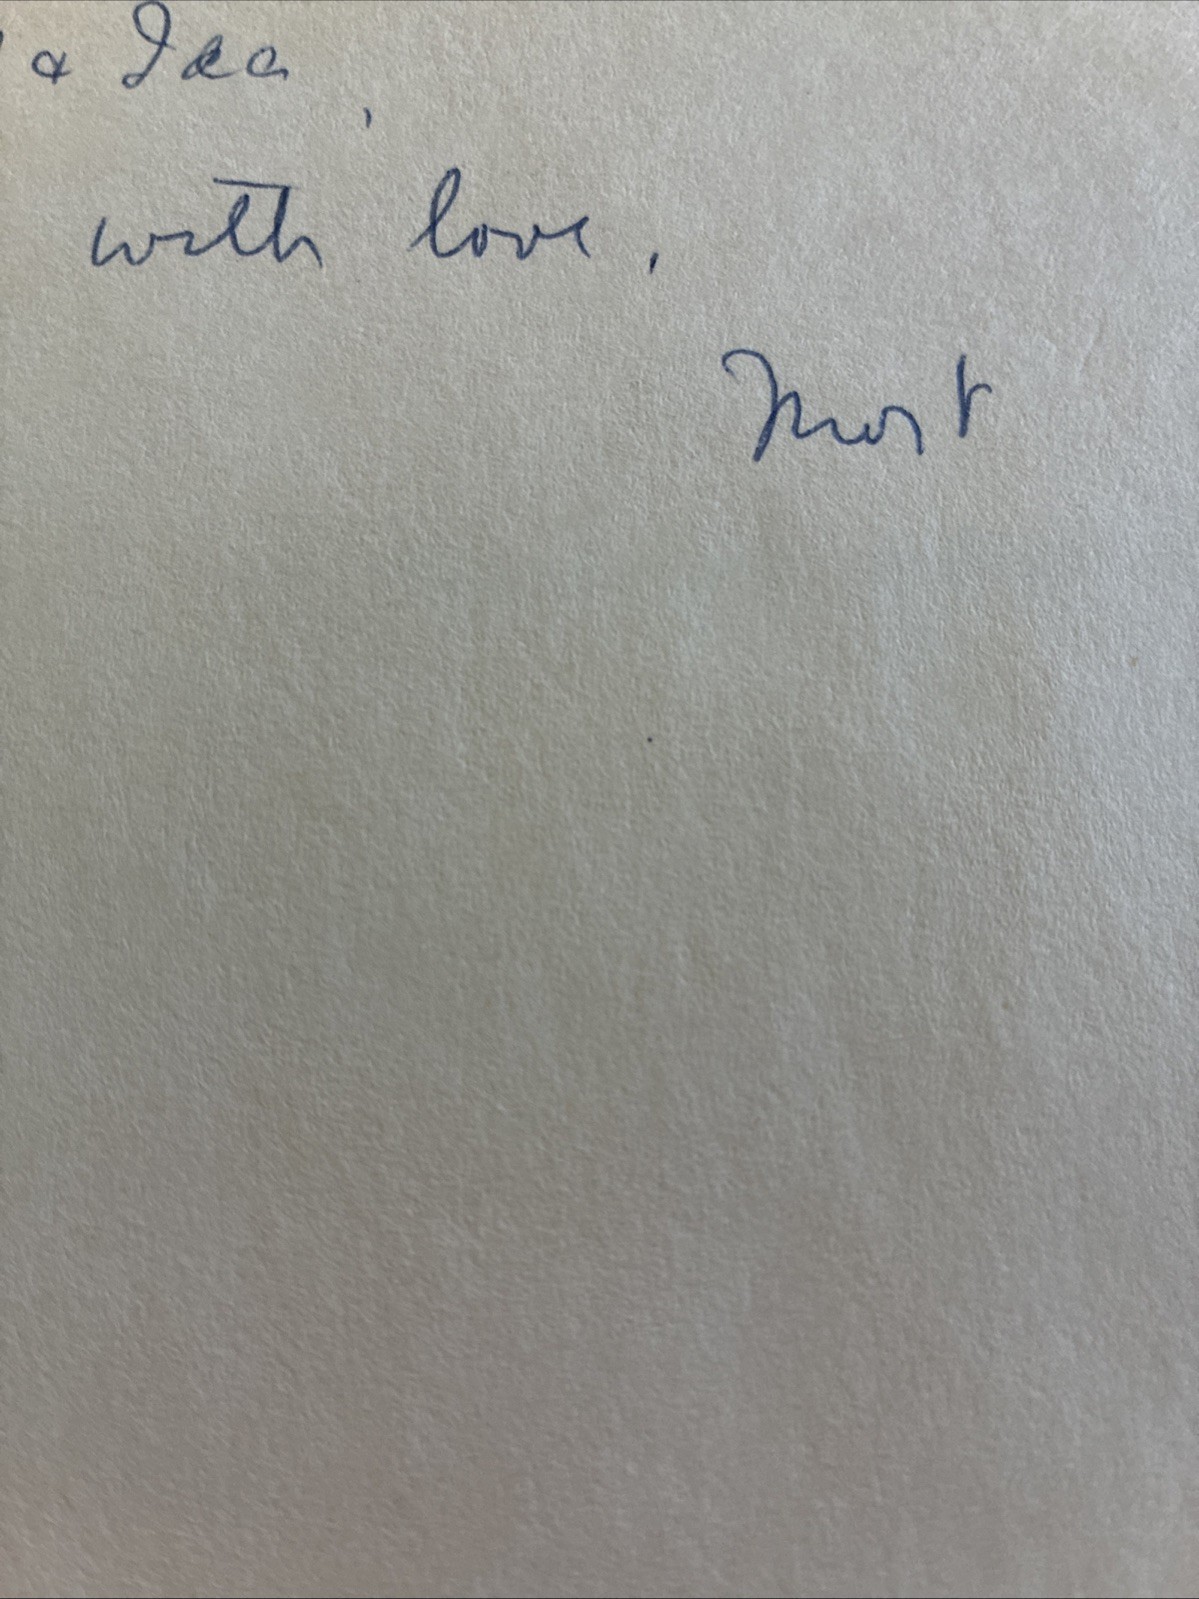 & Ida,
with love,
Mort